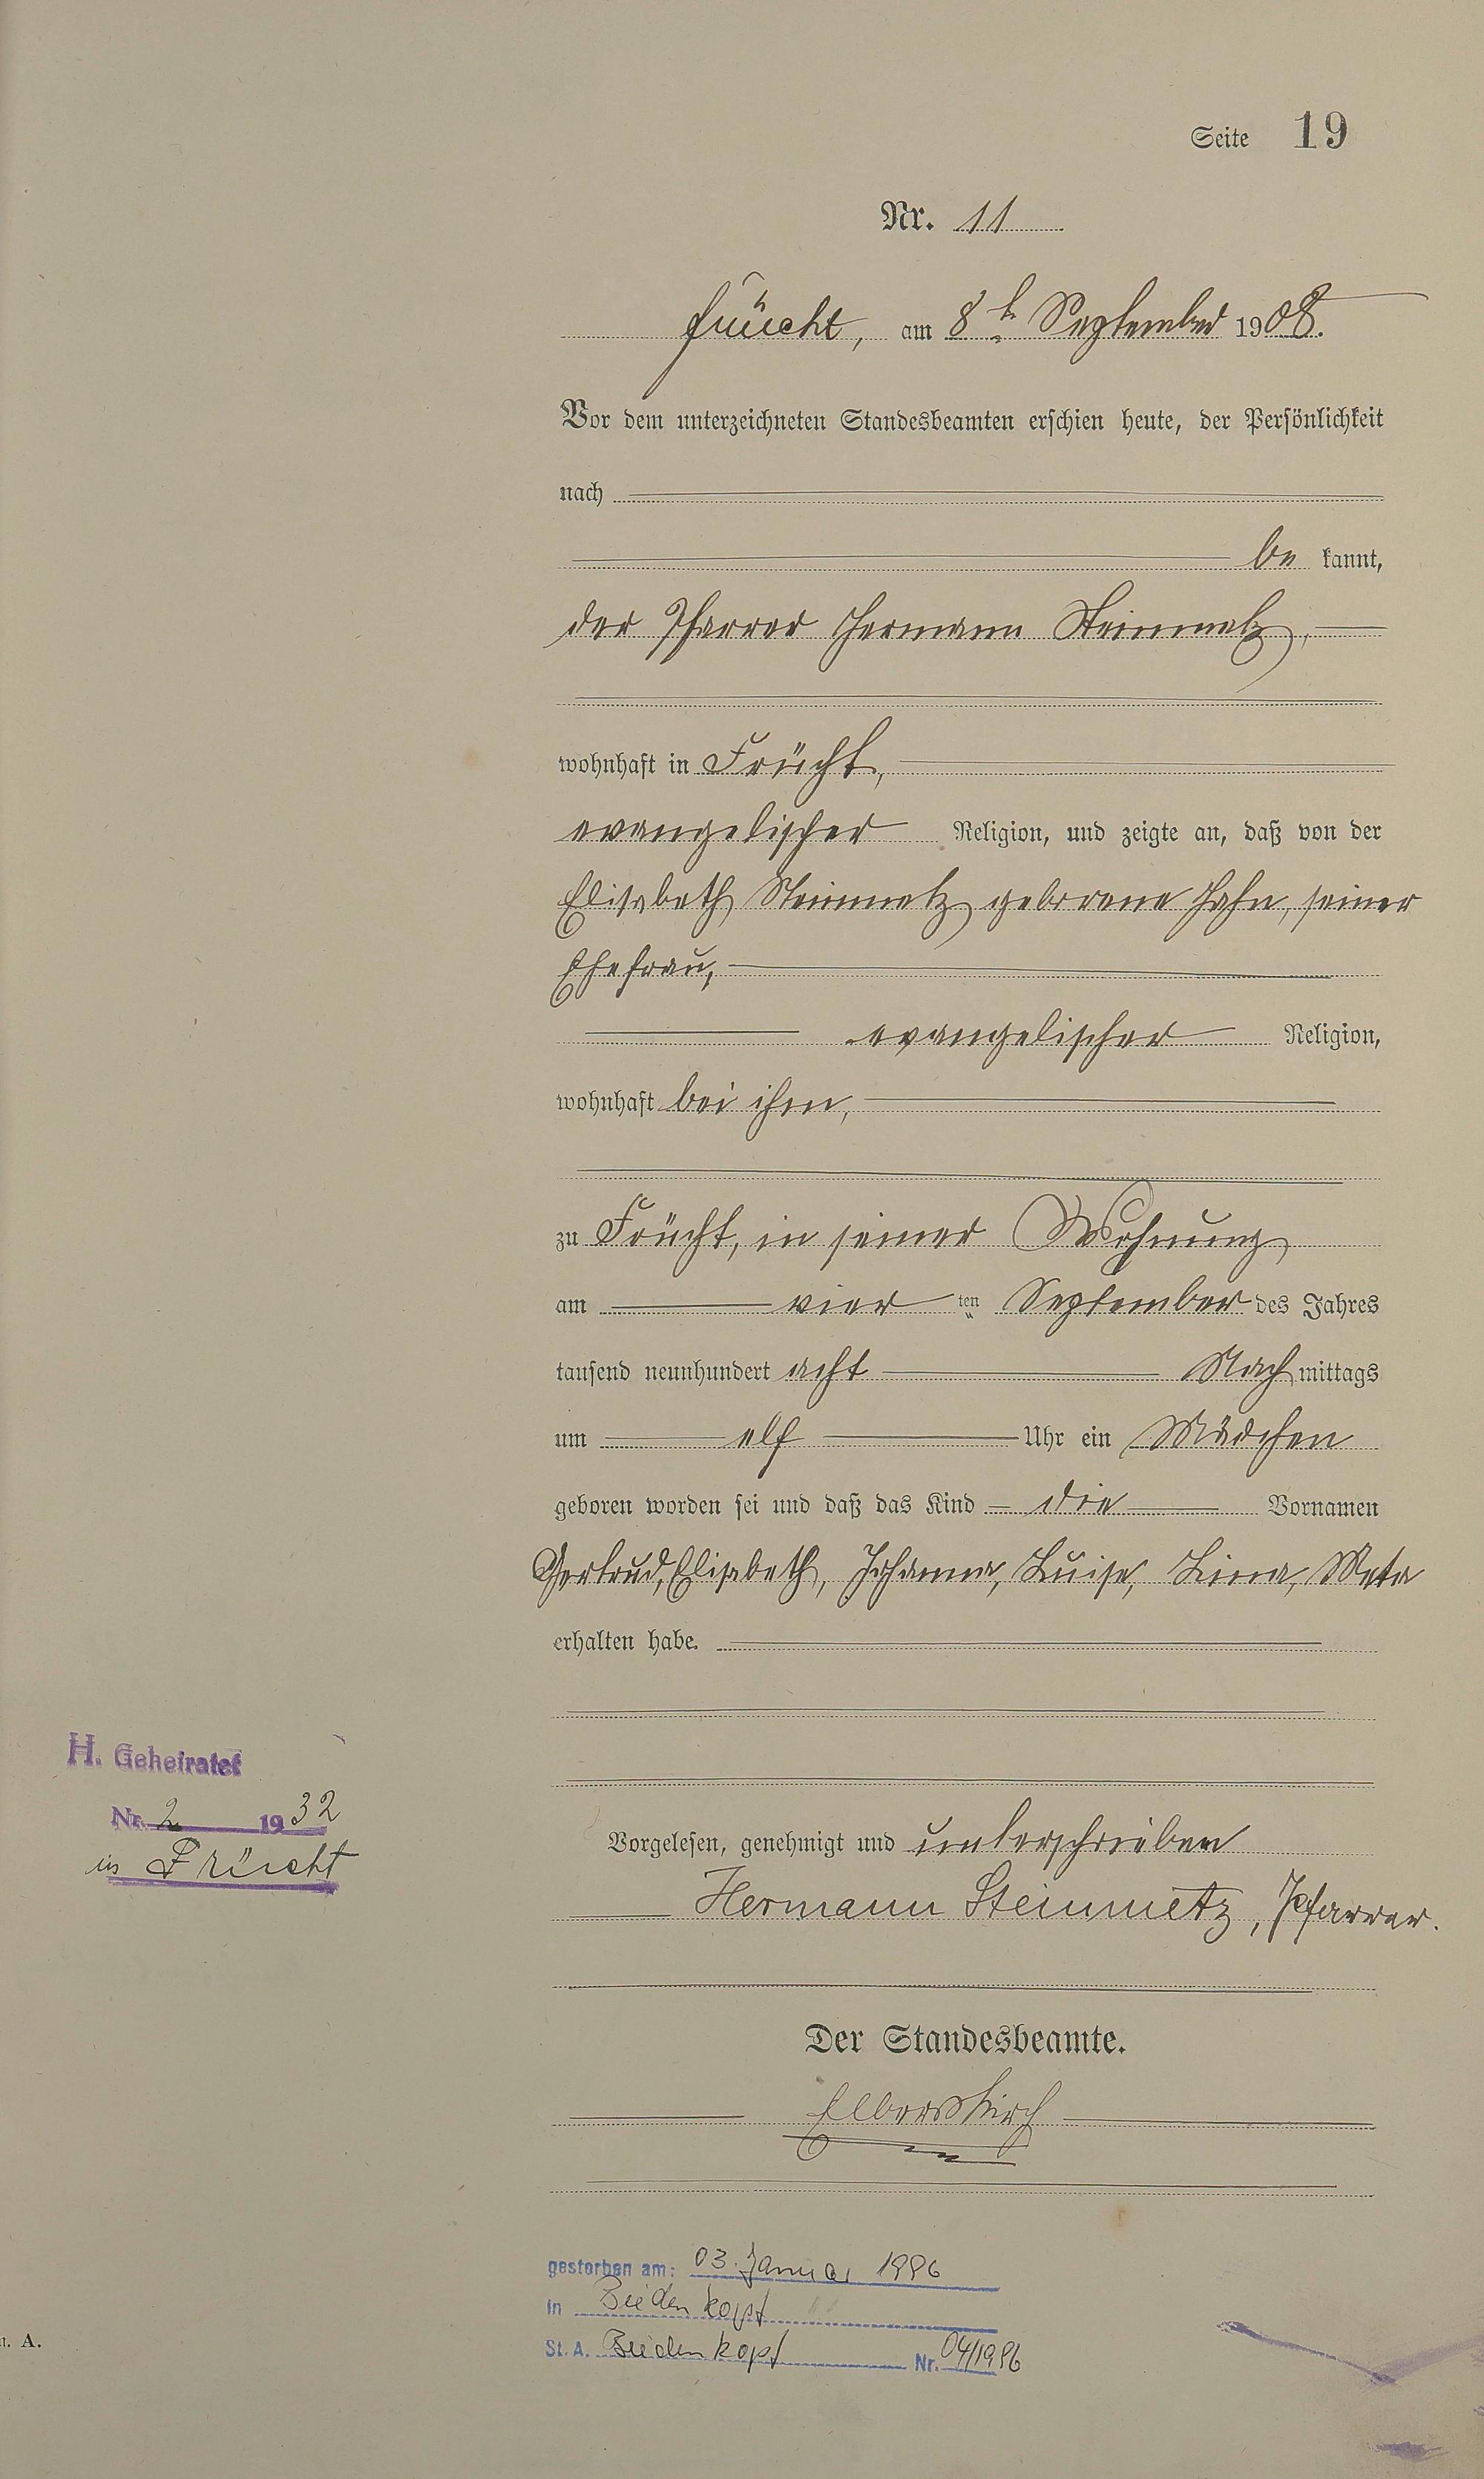 Seite 19
Nr. 11
Frücht, am 8ten September 1908.
Vor dem unterzeichneten Standesbeamten erschien heute, der Persönlichkeit
nach
be kannt,
der Pfarrer Hermann Steinmetz,
wohnhaft in Frücht,
evangelischer Religion, und zeigte an, daß von der
Elisabeth Steinmetz geborene Hahn, seiner
Ehefrau,
evangelischer Religion,
wohnhaft bei ihm,
zu Frücht, in seiner Wohnung
am vier ten September des Jahres
tausend neunhundert acht Nach mittags
um elf Uhr ein Mädchen
geboren worden sei und daß das Kind die Vornamen
Gertrud, Elisabeth, Johanna, Luise, Lina, Meta
erhalten habe.
H. Geheiratet
Nr. 2 1932
in Frücht
Vorgelesen, genehmigt und unterschrieben
Hermann Steinmetz, Pfarrer.
Der Standesbeamte.
Elberskirch
gestorben am: 03. Januar 1996
in Biedenkopf
St. A. Biedenkopf Nr. 04/1996
A.